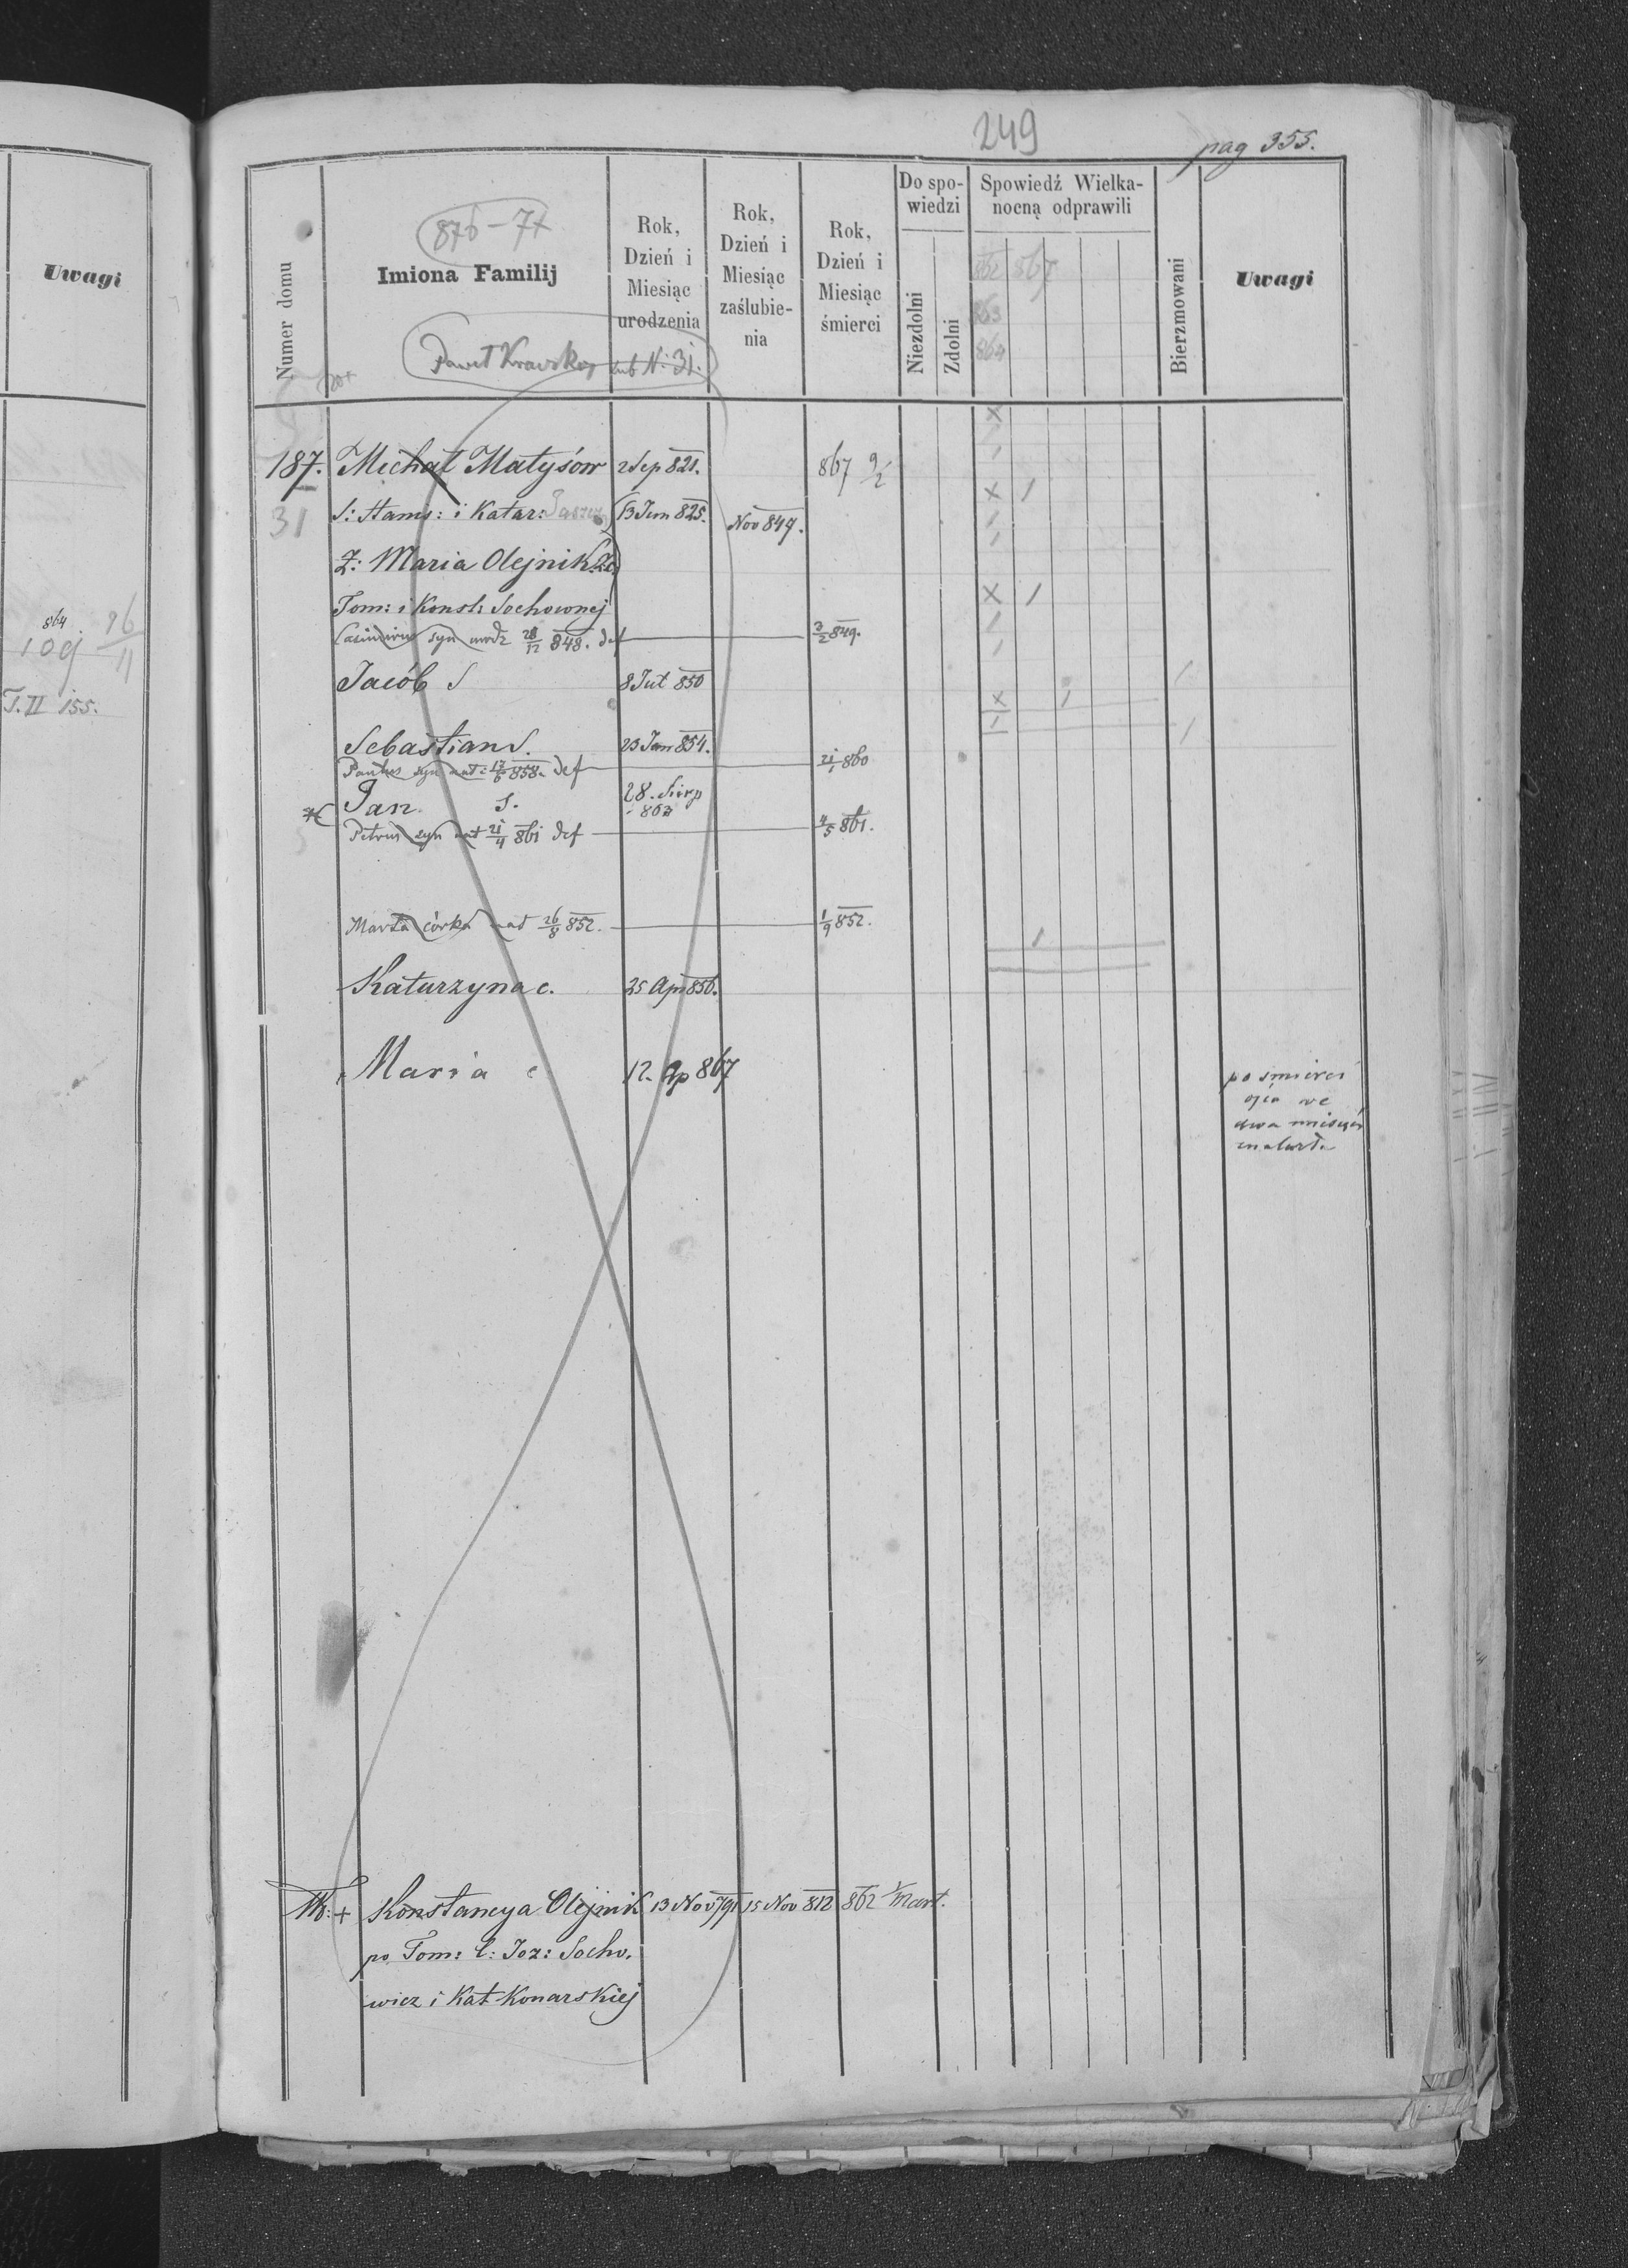 Uwagi
864
10g 26/11
T. II 155.
249
pag 355.
Numer domu
876-77
Imiona Familij
Paweł
sub N. 31.
Rok, Dzień i Miesiąc urodzenia
Rok, Dzień i Miesiąc zaślubienia
Rok, Dzień i Miesiąc śmierci
Do spowiedzi
Niezdolni
Zdolni
Spowiedź Wielkanocną odprawili
862 867
863
864
Bierzmowani
Uwagi
187. Michał Matysów 2 Sep 821. 867 9/2
31 S: Stanis: i Katar: 13 Jun 825. Nov 847.
Ż: Maria Olejnik C.
Tom: i Konst: Sochowonej
Casimirus syn urodz 28/12 848. def 3/2 849.
Jacób S 8 Jul 850
Sebastian S. 23 Jan 854.
Paulus syn nat 17/6 858. def 21/1 860
Jan S. 28. Sierp 863
Petrus syn nat 21/4 861 def 4/5 861.
Marta córka nat 26/8 852. 1/9 852.
Katarzyna c. 25 Apr 856.
Maria c 12. Ap 867
po śmierci
ojca we
dwa miesiące
umarła
+ Konstancya Olejnik 13 Nov 791 15 Nov 812 862 1/Mart.
po Tom: C: Joz: Socho.
wicz i Kat Konarskiej